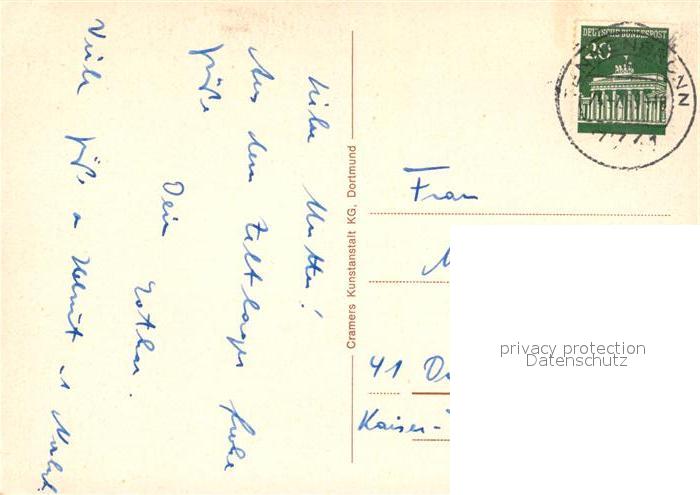 Liebe Mutter!
Aus dem Zeltlager frohe
Grüße
Dein
Lothar.
Viele Grüße a Helmut
Cramers Kunstanstalt KG, Dortmund
DEUTSCHE BUNDESPOST
20
Frau
41
Kaiser-
privacy protection
Datenschutz